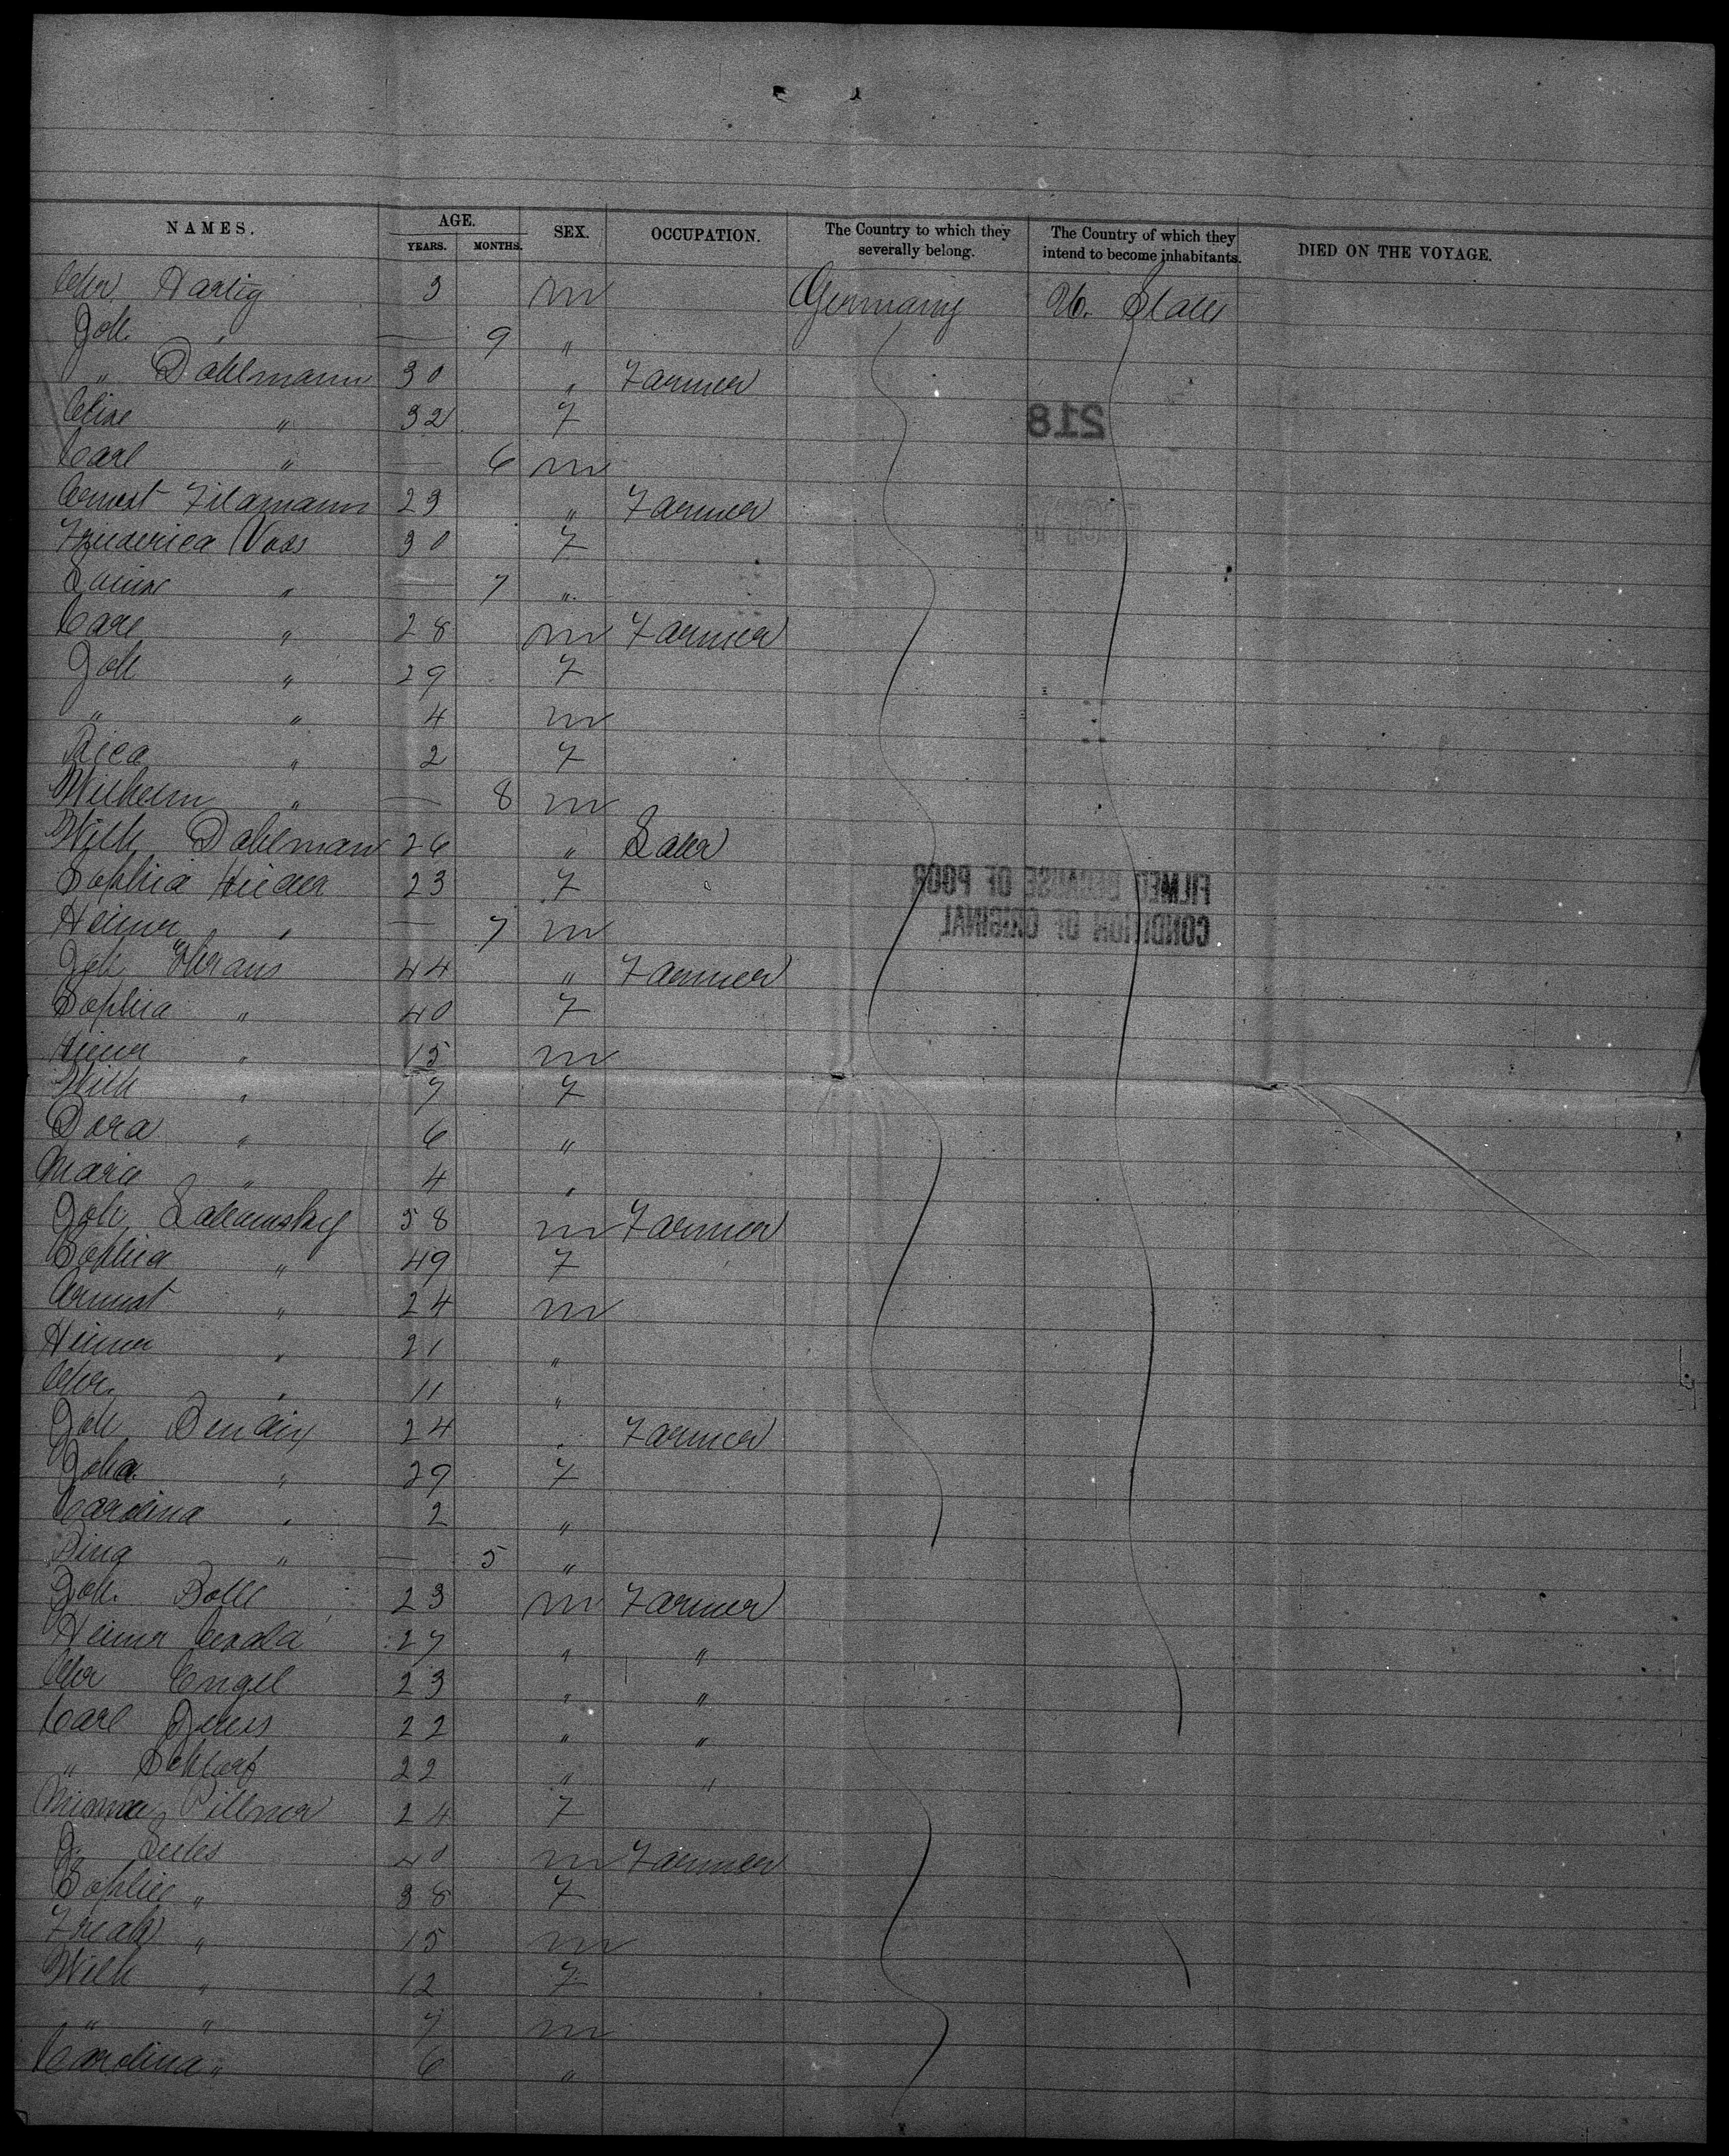 NAMES. AGE. SEX. OCCUPATION. The Country to which they severally belong. The Country of which they intend to become inhabitants. DIED ON THE VOYAGE.
YEARS. MONTHS.
Chr Hartig 3 m Germany U. States
Joh. " — 9 "
" Dahlmann 30 " Farmer
Eline " 32 F
Carl " — 6 m
Ernest 29 " Farmer
Friederica Voss 30 F
Louise " — 7 "
Carl " 28 m Farmer
Joh " 29 F
" " 4 m
Rica " 2 F
Wilhelm " — 8 m
Wilh Dahlmann 26 "
Sophia 23 F
Heinr " — 7 m
Joh 44 " Farmer
Sophia " 40 F
Heinr " 15 m
Wilh " 7 F
Dora " 6 "
Maria " 4 "
Joh. 58 m Farmer
Sophia " 49 F
Ernest " 24 m
Heinr " 21 "
Chr. " 11 "
Joh Bendix 24 " Farmer
Joha " 29 F
Carolina " 2 "
" — 5 "
Joh. Bolle 23 m Farmer
Heinr 27 " "
Chr Engel 23 " "
Carl 22 " "
" 22 " "
Minna 24 F
J. 40 m Farmer
Sophie " 38 F
Friedr " 15 m
Wilh " 12 F
" " 7 m
Carolina " 6 "
218
FILMED BECAUSE OF POOR
CONDITION OF ORIGINAL